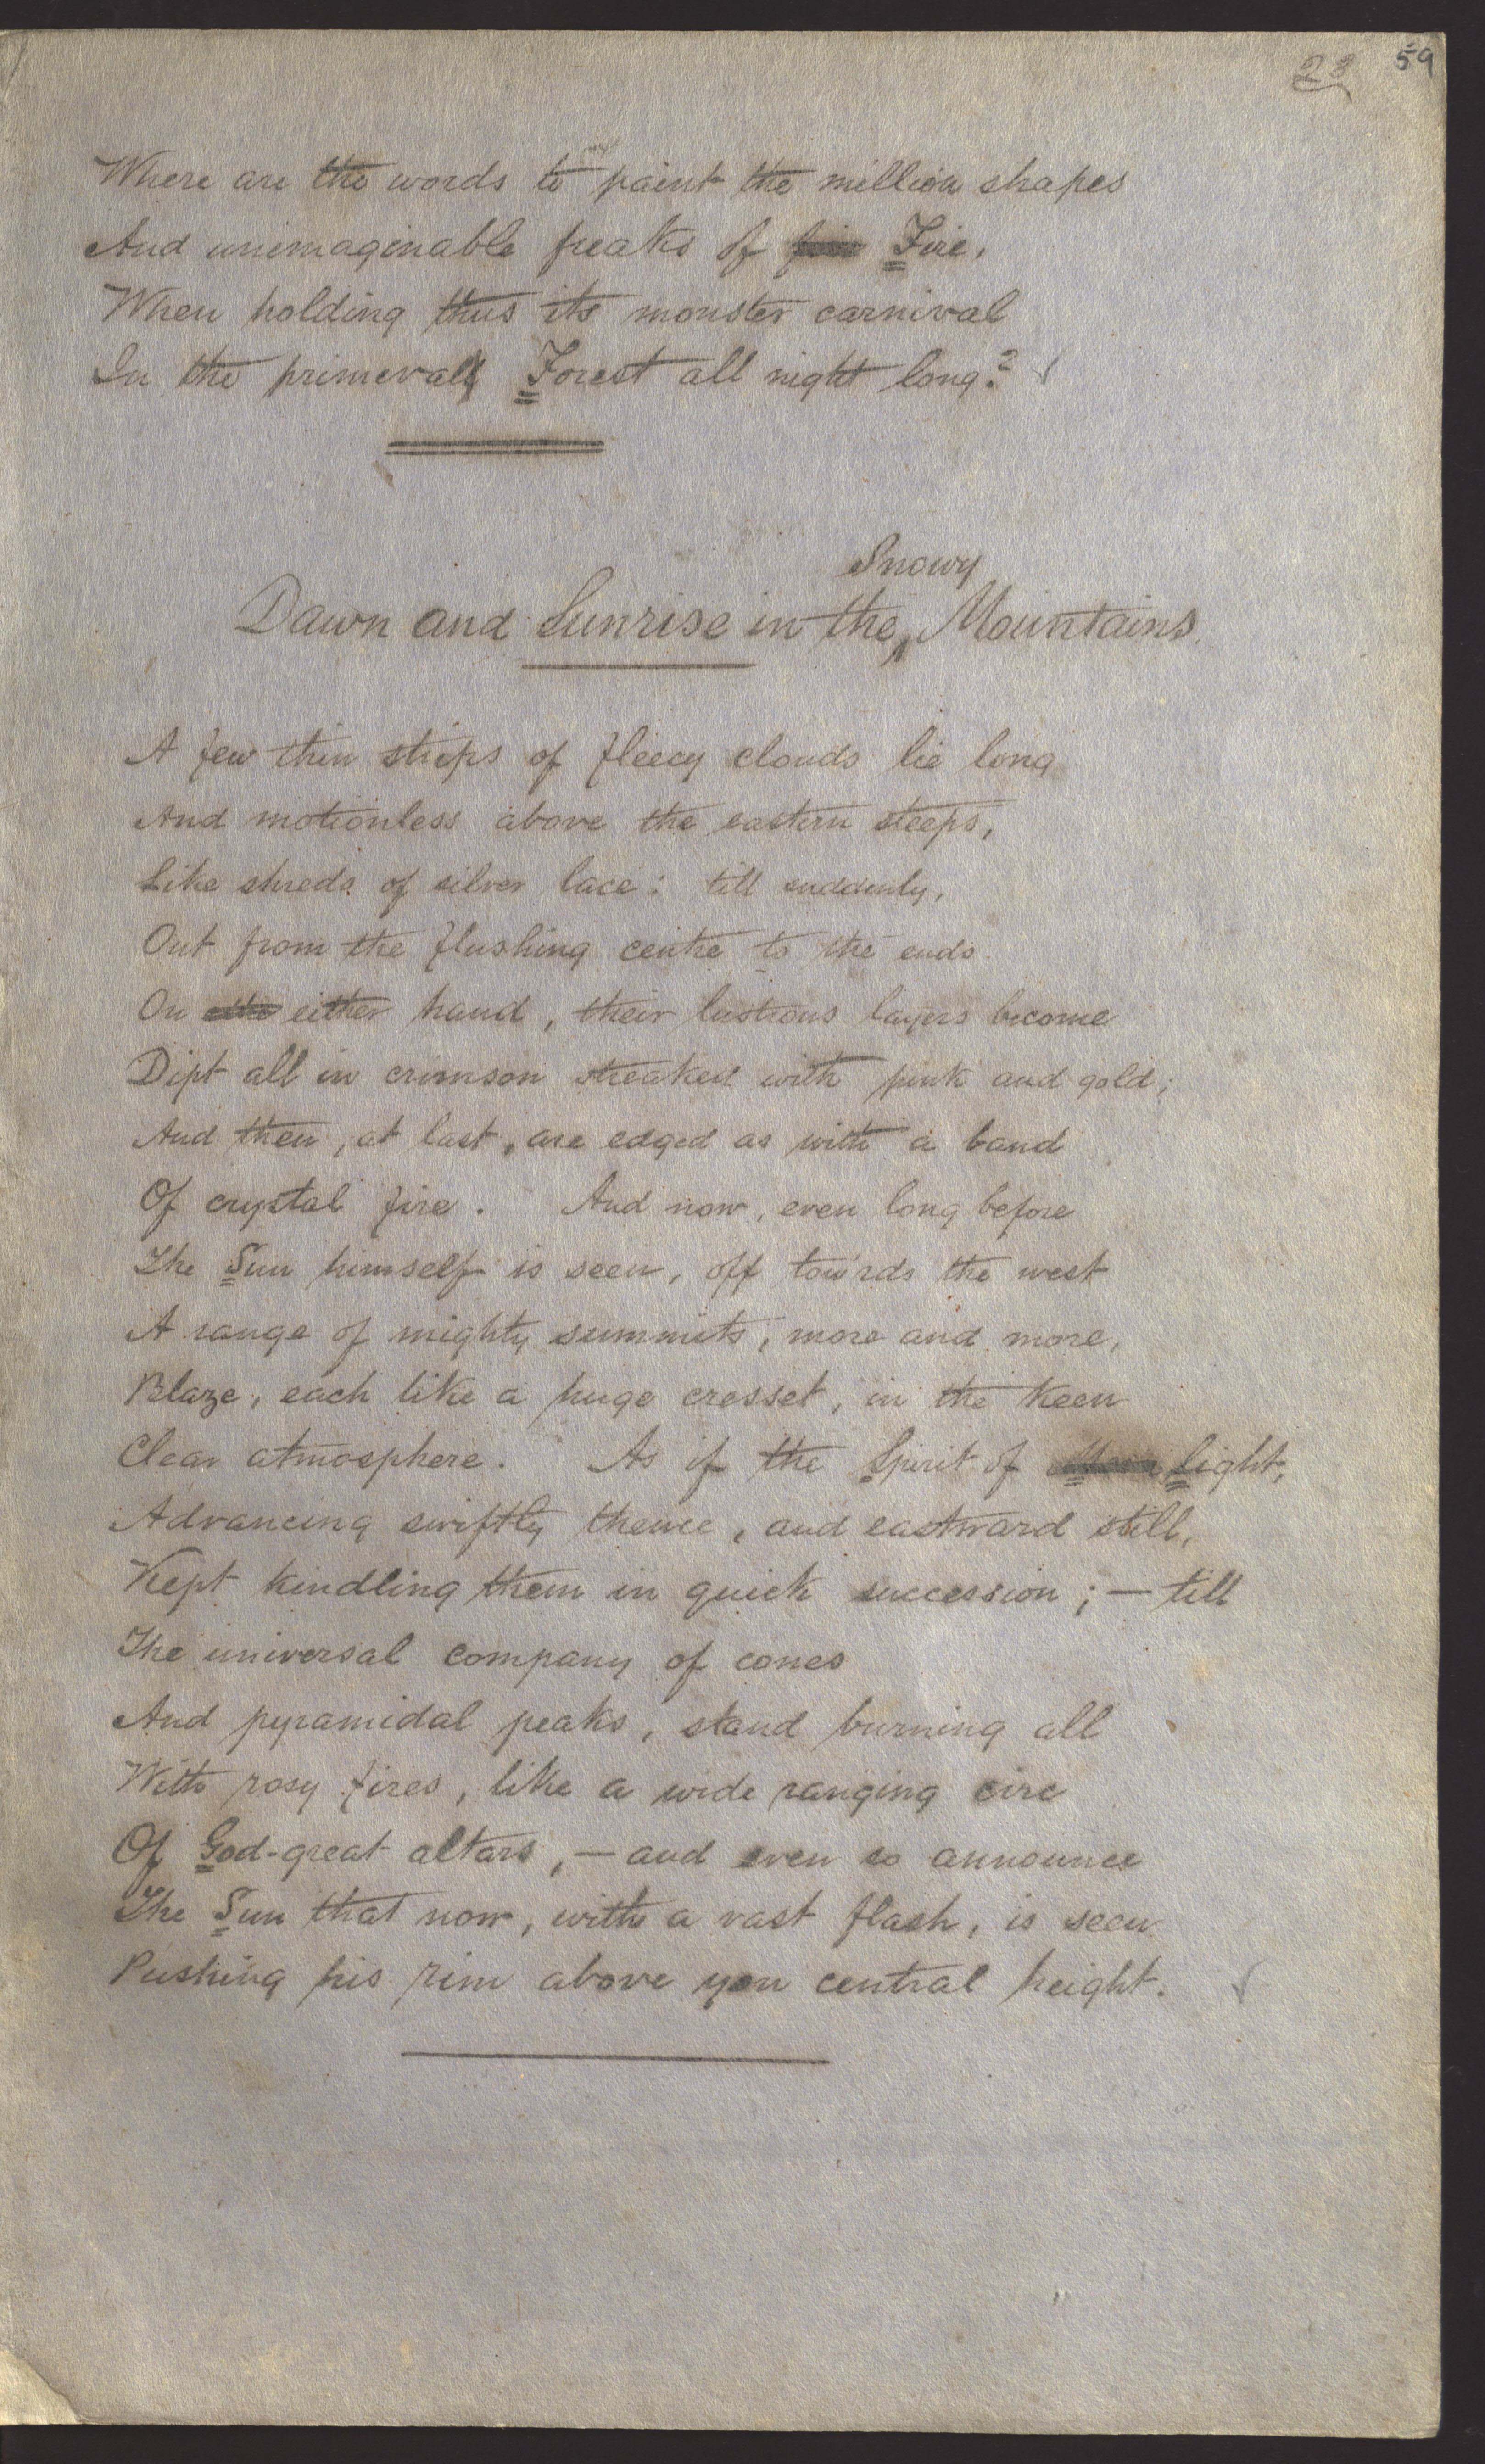 28 59
Where are the words to paint the million shapes
And unimaginable freaks of Fire,
When holding thus its monster carnival
In the primeval Forest all night long?
Snowy
Dawn and Sunrise in the Mountains.
A few thin strips of fleecy clouds lie long
And motionless above the eastern steeps,
Like shreds of silver lace: till suddenly,
Out from the flushing centre to the ends
On either hand, their lustrous layers become
Dipt all in crimson streaked with pink and gold;
And then, at last, are edged as with a band
Of crystal fire. And now, even long before
The Sun himself is seen, off tow'rds the west
A range of mighty summits, more and more,
Blaze, each like a huge cresset, in the keen
Clear atmosphere. As if the Spirit of Light,
Advancing swiftly thence, and eastward still,
Kept kindling them in quick succession; — till
The universal company of cones
And pyramidal peaks, stand burning all
With rosy fires, like a wide ranging circ
Of God-great altars, — and even so announce
The Sun that now, with a vast flash, is seen
Pushing his rim above yon central height.